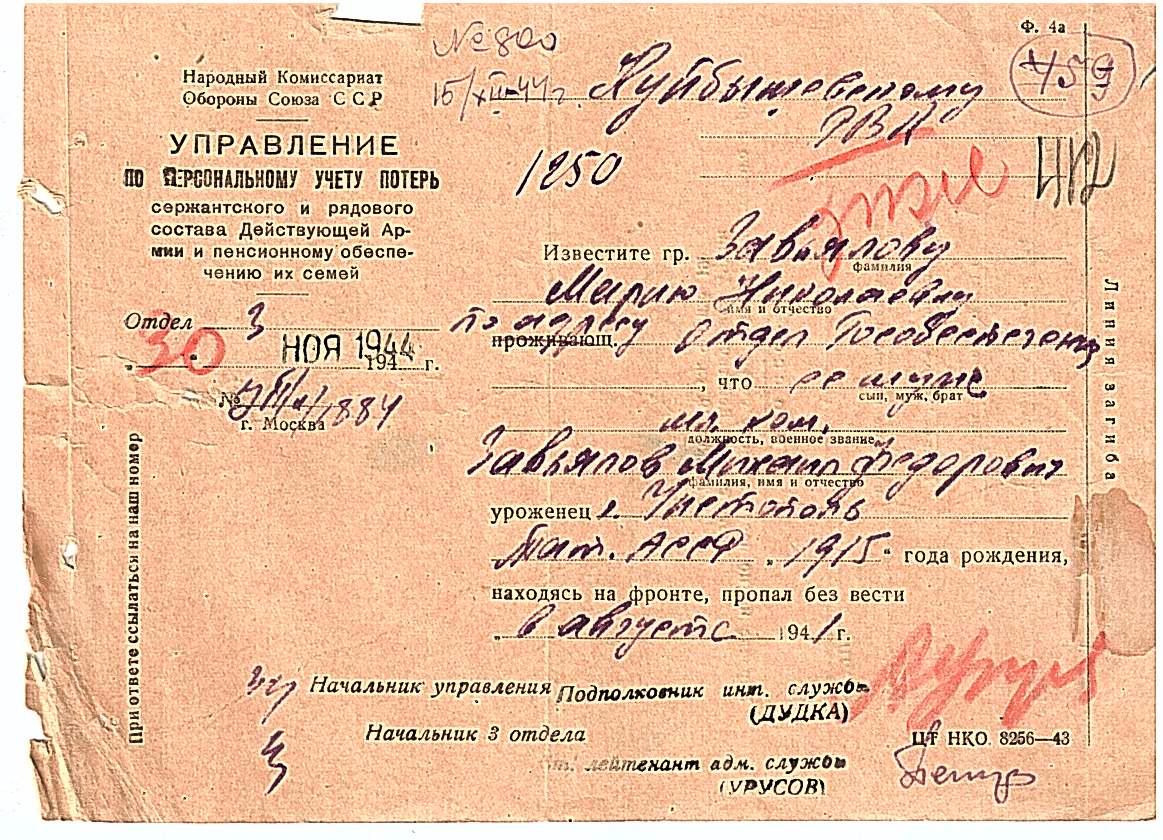 Ф. 4а
№ 800
15/XII-44 г.
459
Народный Комиссариат
Обороны Союза ССР
УПРАВЛЕНИЕ
ПО ПЕРСОНАЛЬНОМУ УЧЕТУ ПОТЕРЬ
сержантского и рядового
состава Действующей Ар-
мии и пенсионному обеспе-
чению их семей
Отдел 3
30 НОЯ 1944 194 г.
№ 1884
г. Москва
При ответе ссылаться на наш номер
Куйбышевскому
РВК
1250
Известите гр. Завьялову
фамилия
Марию Николаевну
имя и отчество
проживающ. по адресу отдел Гособеспечения
, что ее муж
сын, муж, брат
мл. ком.
должность, военное звание
Завьялов Михаил Федорович
фамилия, имя и отчество
уроженец г. Чистополь
Тат. АССР „1915“ года рождения,
находясь на фронте, пропал без вести
„в августе 1941 г.
Линия загиба
Начальник управления Подполковник инт. службы
(ДУДКА)
Начальник 3 отдела
ст. лейтенант адм. службы
(УРУСОВ)
ЦТ НКО 8256—43